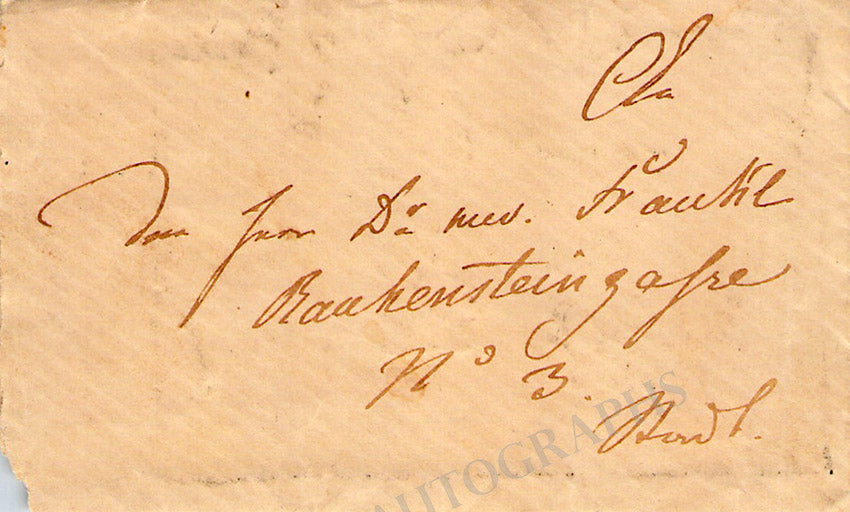 An
den Herrn Dr med. Fränkl
Rauhensteingasse
No 3.
Stadt.
AUTOGRAPHS